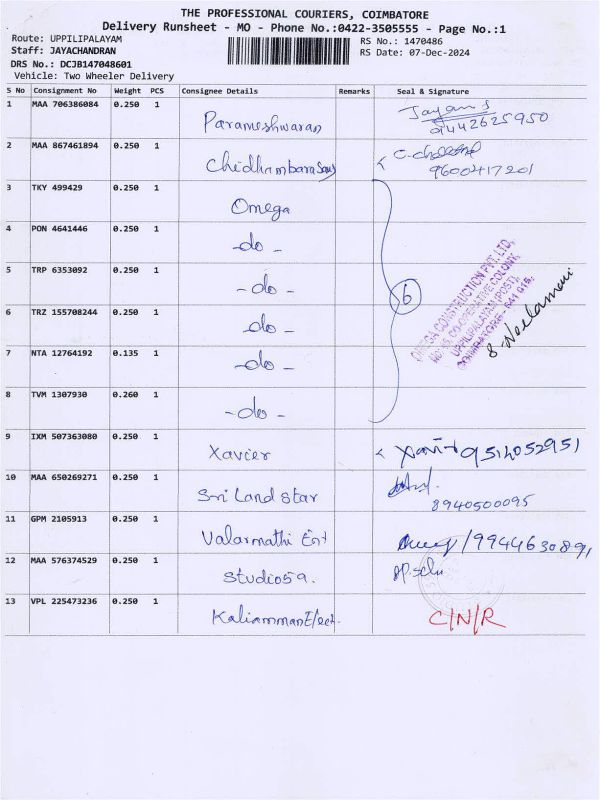 THE PROFESSIONAL COURIERS, COIMBATORE
Delivery Runsheet - MO - Phone No.:0422-3505555 - Page No.:1
Route: UPPILIPALAYAM
Staff: JAYACHANDRAN
DRS No.: DCJB147048601
Vehicle: Two Wheeler Delivery
RS No.: 1470486
RS Date: 07-Dec-2024
S No Consignment No Weight PCS Consignee Details Remarks Seal & Signature
1 MAA 706386084 0.250 1 Parameshwaran
9442625950
2 MAA 867461894 0.250 1 Chidhambarasamy
9600417201
3 TKY 499429 0.250 1 Omega
4 PON 4641446 0.250 1 -do-
5 TRP 6353092 0.250 1 -do-
6 TRZ 155708244 0.250 1 -do-
7 NTA 12764192 0.135 1 -do-
8 TVM 1307930 0.260 1 -do-
6
OMEGA CONSTRUCTION PVT. LTD.
CO-OPERATIVE COLONY,
UPPILIPALAYAM (POST),
COIMBATORE - 641 015.
Neelameni
9 IXM 507363080 0.250 1 Xavier 9512052951
10 MAA 650269271 0.250 1 Sri Land Star
8940500095
11 GPM 2105913 0.250 1 Valarmathi Ent /9944630891
12 MAA 576374529 0.250 1 Studio59.
13 VPL 225473236 0.250 1 KaliammanElect. C/N/R